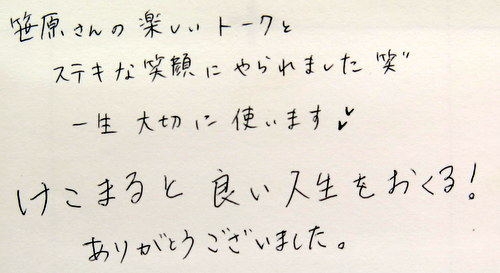 笹原さんの楽しいトークと
ステキな笑顔にやられました笑"
一生大切に使います♥
けこまると良い人生をおくる!
ありがとうございました。